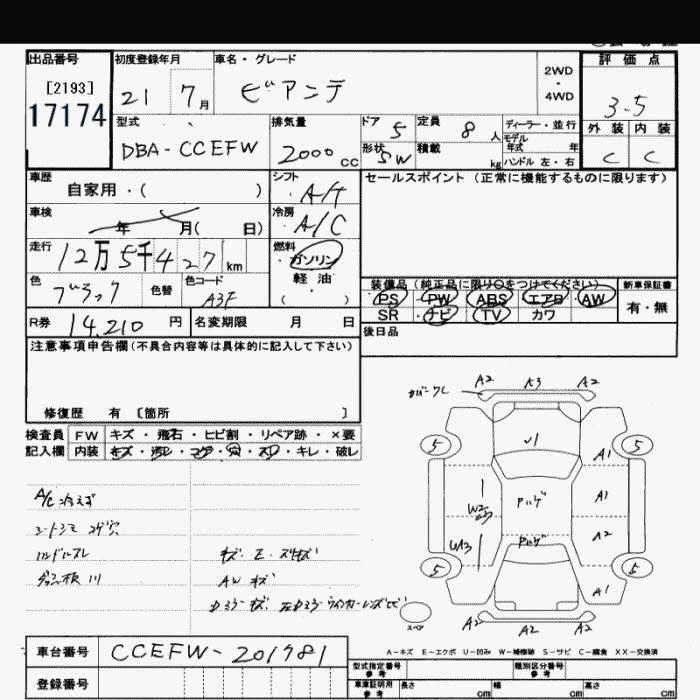 出品番号 初度登録年月 車名・グレード 2WD・4WD 評価点
[2193]
17174 21 7月 ビアンテ 3.5
型式 排気量 ドア 5 定員 8人 ディーラー・並行 外装 内装
DBA-CCEFW 2000cc 形状 SW 積載 kg モデル年式 年 ハンドル 左・右 C C
車歴 シフト セールスポイント(正常に機能するものに限ります)
自家用・( ) A/T
車検 冷房
年 月( 日) A/C
走行 燃料
12万5千427km ガソリン
色 色替 色コード 軽油 装備品(純正品に限り○をつけてください) 新車保証書
ブラック A3F ( ) PS PW ABS エアB AW 有・無
SR ナビ TV カワ
R券 14,210円 名変期限 月 日 後日品
注意事項申告欄(不具合内容等は具体的に記入して下さい)
修復歴 有 [箇所 ]
検査員 FW キズ・飛石・ヒビ割・リペア跡・×要
記入欄 内装 キズ・汚レ・コゲ・穴・スレ・キレ・破レ
A2 A3 A2
5 5
√1
A1
A1
W2
A2
W3
5 5
A1
A2 A2 A2
A/C冷えず
ハンドルスレ
AWキズ
スペア
A-キズ E-エクボ U-凹み W-補修跡 S-サビ C-腐食 XX-交換済
車台番号 CCEFW-201781 型式指定番号 参考 類別区分番号 参考
登録番号 車庫証明用 参考 長さ cm 幅 cm 高さ cm